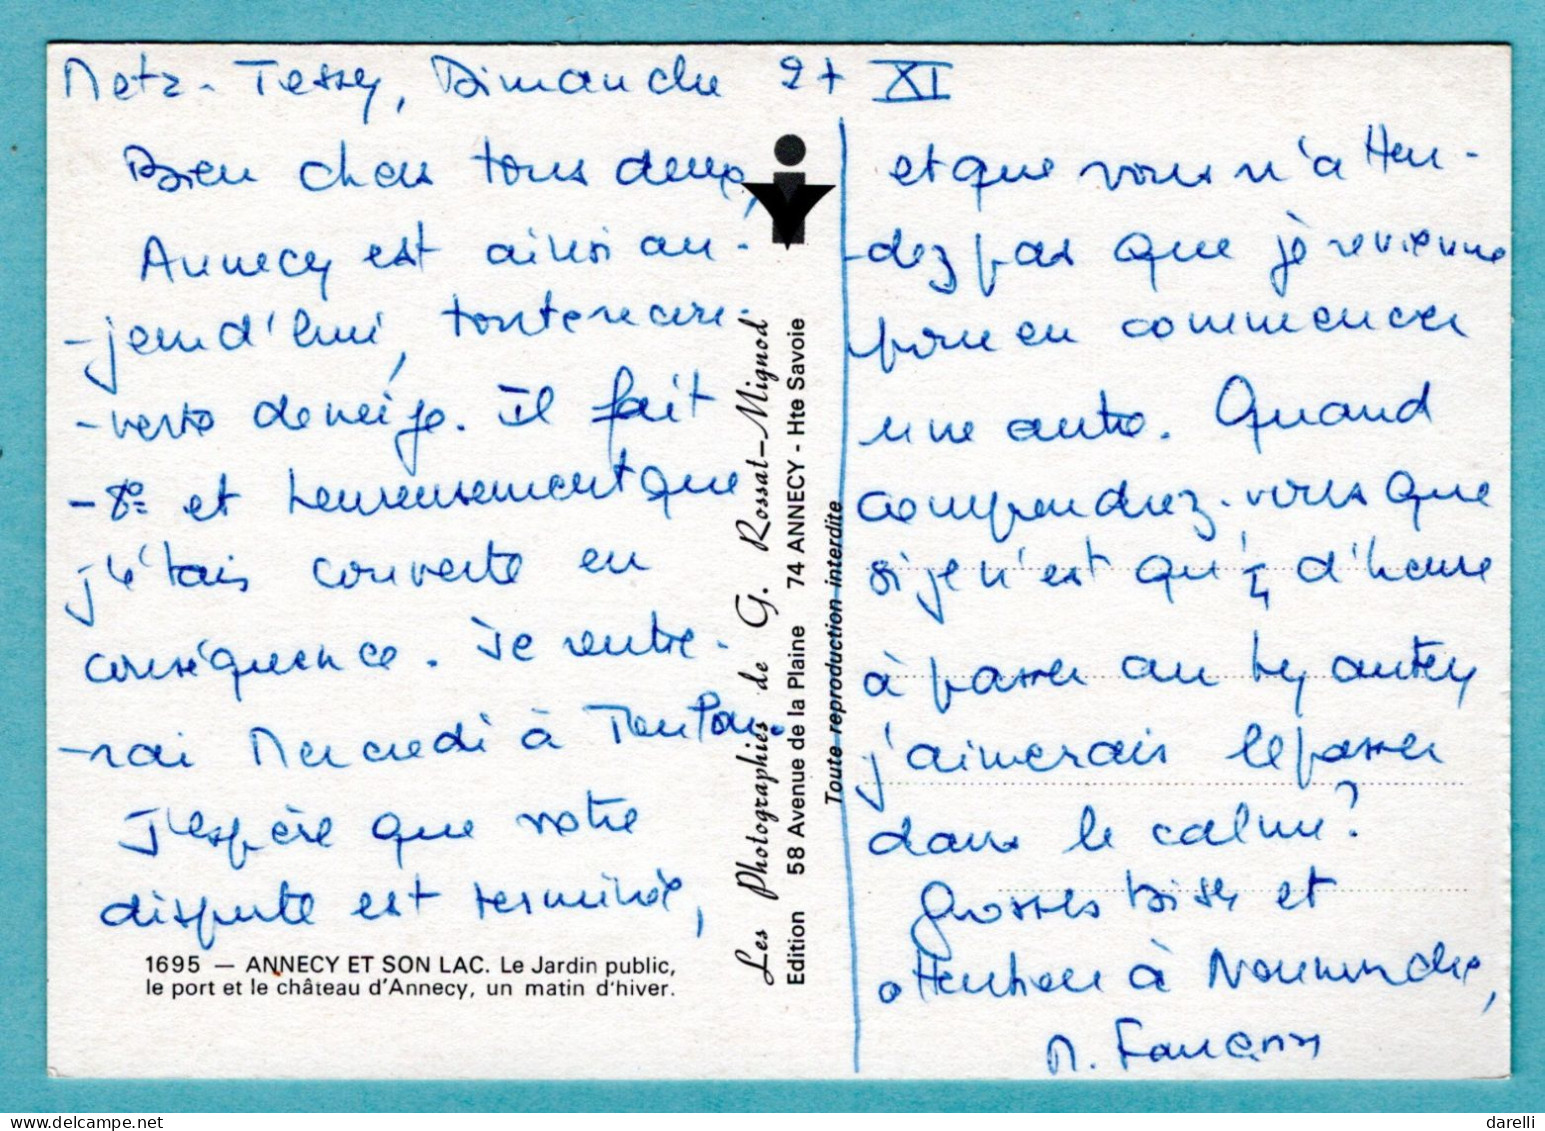 Metz-Tessy, Dimanche 27 XI
Bien chers tous deux,
Annecy est ainsi au-
-jourd'hui, toute recou-
-verte de neige. Il fait
-8° et heureusement que
j'étais couverte en
conséquence. Je rentre-
-rai Mercredi à
J'espère que votre
dispute est terminée,
et que vous n'atten-
-dez pas que je revienne
pour en commencer
une autre. Quand
comprendrez-vous que
si je n'ai qu'¼ d'heure
à passer au
j'aimerais le passer
dans le calme?
Grosses bises et
attention à Noirmouche,
M.
1695 — ANNECY ET SON LAC. Le Jardin public,
le port et le château d'Annecy, un matin d'hiver.
Les Photographies de G. Rossat-Mignod
Edition 58 Avenue de la Plaine 74 ANNECY - Hte Savoie
Toute reproduction interdite
darelli